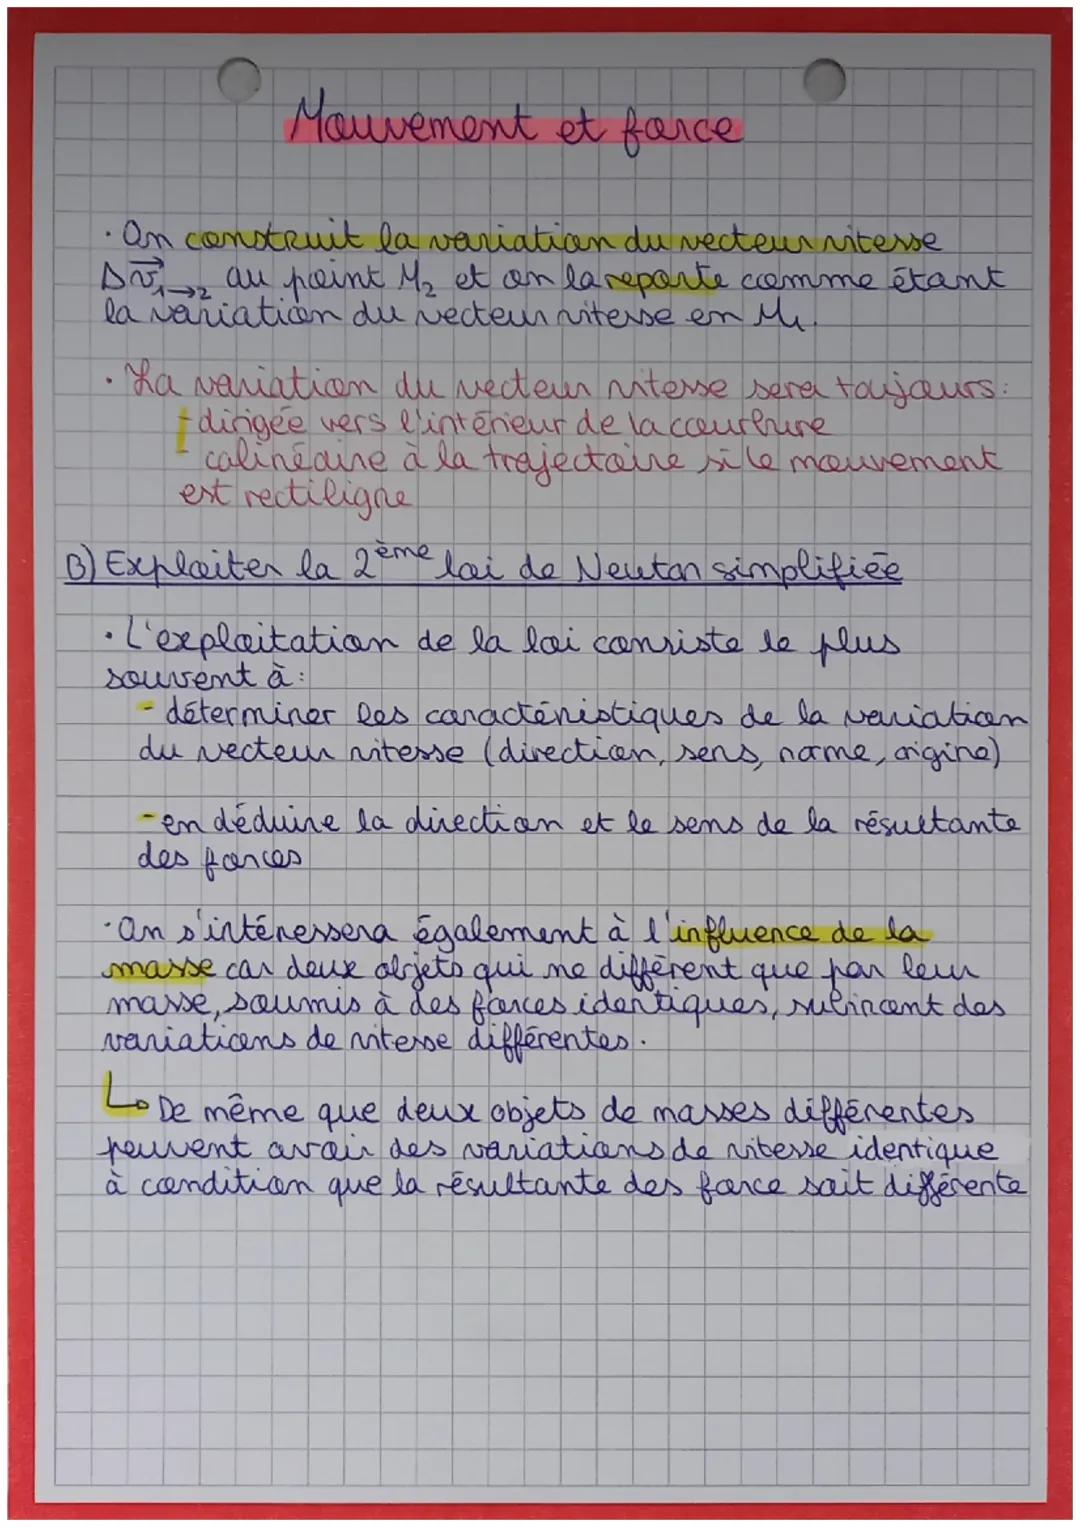 Mouvement et force
· On construit la variation du vecteur vitesse
Δv⃗₁→₂ au point M₂ et on la reporte comme étant
la variation du vecteur vitesse en M₁.
· La variation du vecteur vitesse sera toujours :
- dirigée vers l'intérieur de la courbure
- colinéaire à la trajectoire si le mouvement
est rectiligne
B) Exploiter la 2ème loi de Newton simplifiée
· L'exploitation de la loi consiste le plus
souvent à :
- déterminer les caractéristiques de la variation
du vecteur vitesse (direction, sens, norme, origine)
- en déduire la direction et le sens de la résultante
des forces
· On s'intéressera également à l'influence de la
masse car deux objets qui ne diffèrent que par leur
masse, soumis à des forces identiques, subiront des
variations de vitesse différentes.
↳ De même que deux objets de masses différentes
peuvent avoir des variations de vitesse identique
à condition que la résultante des force soit différente